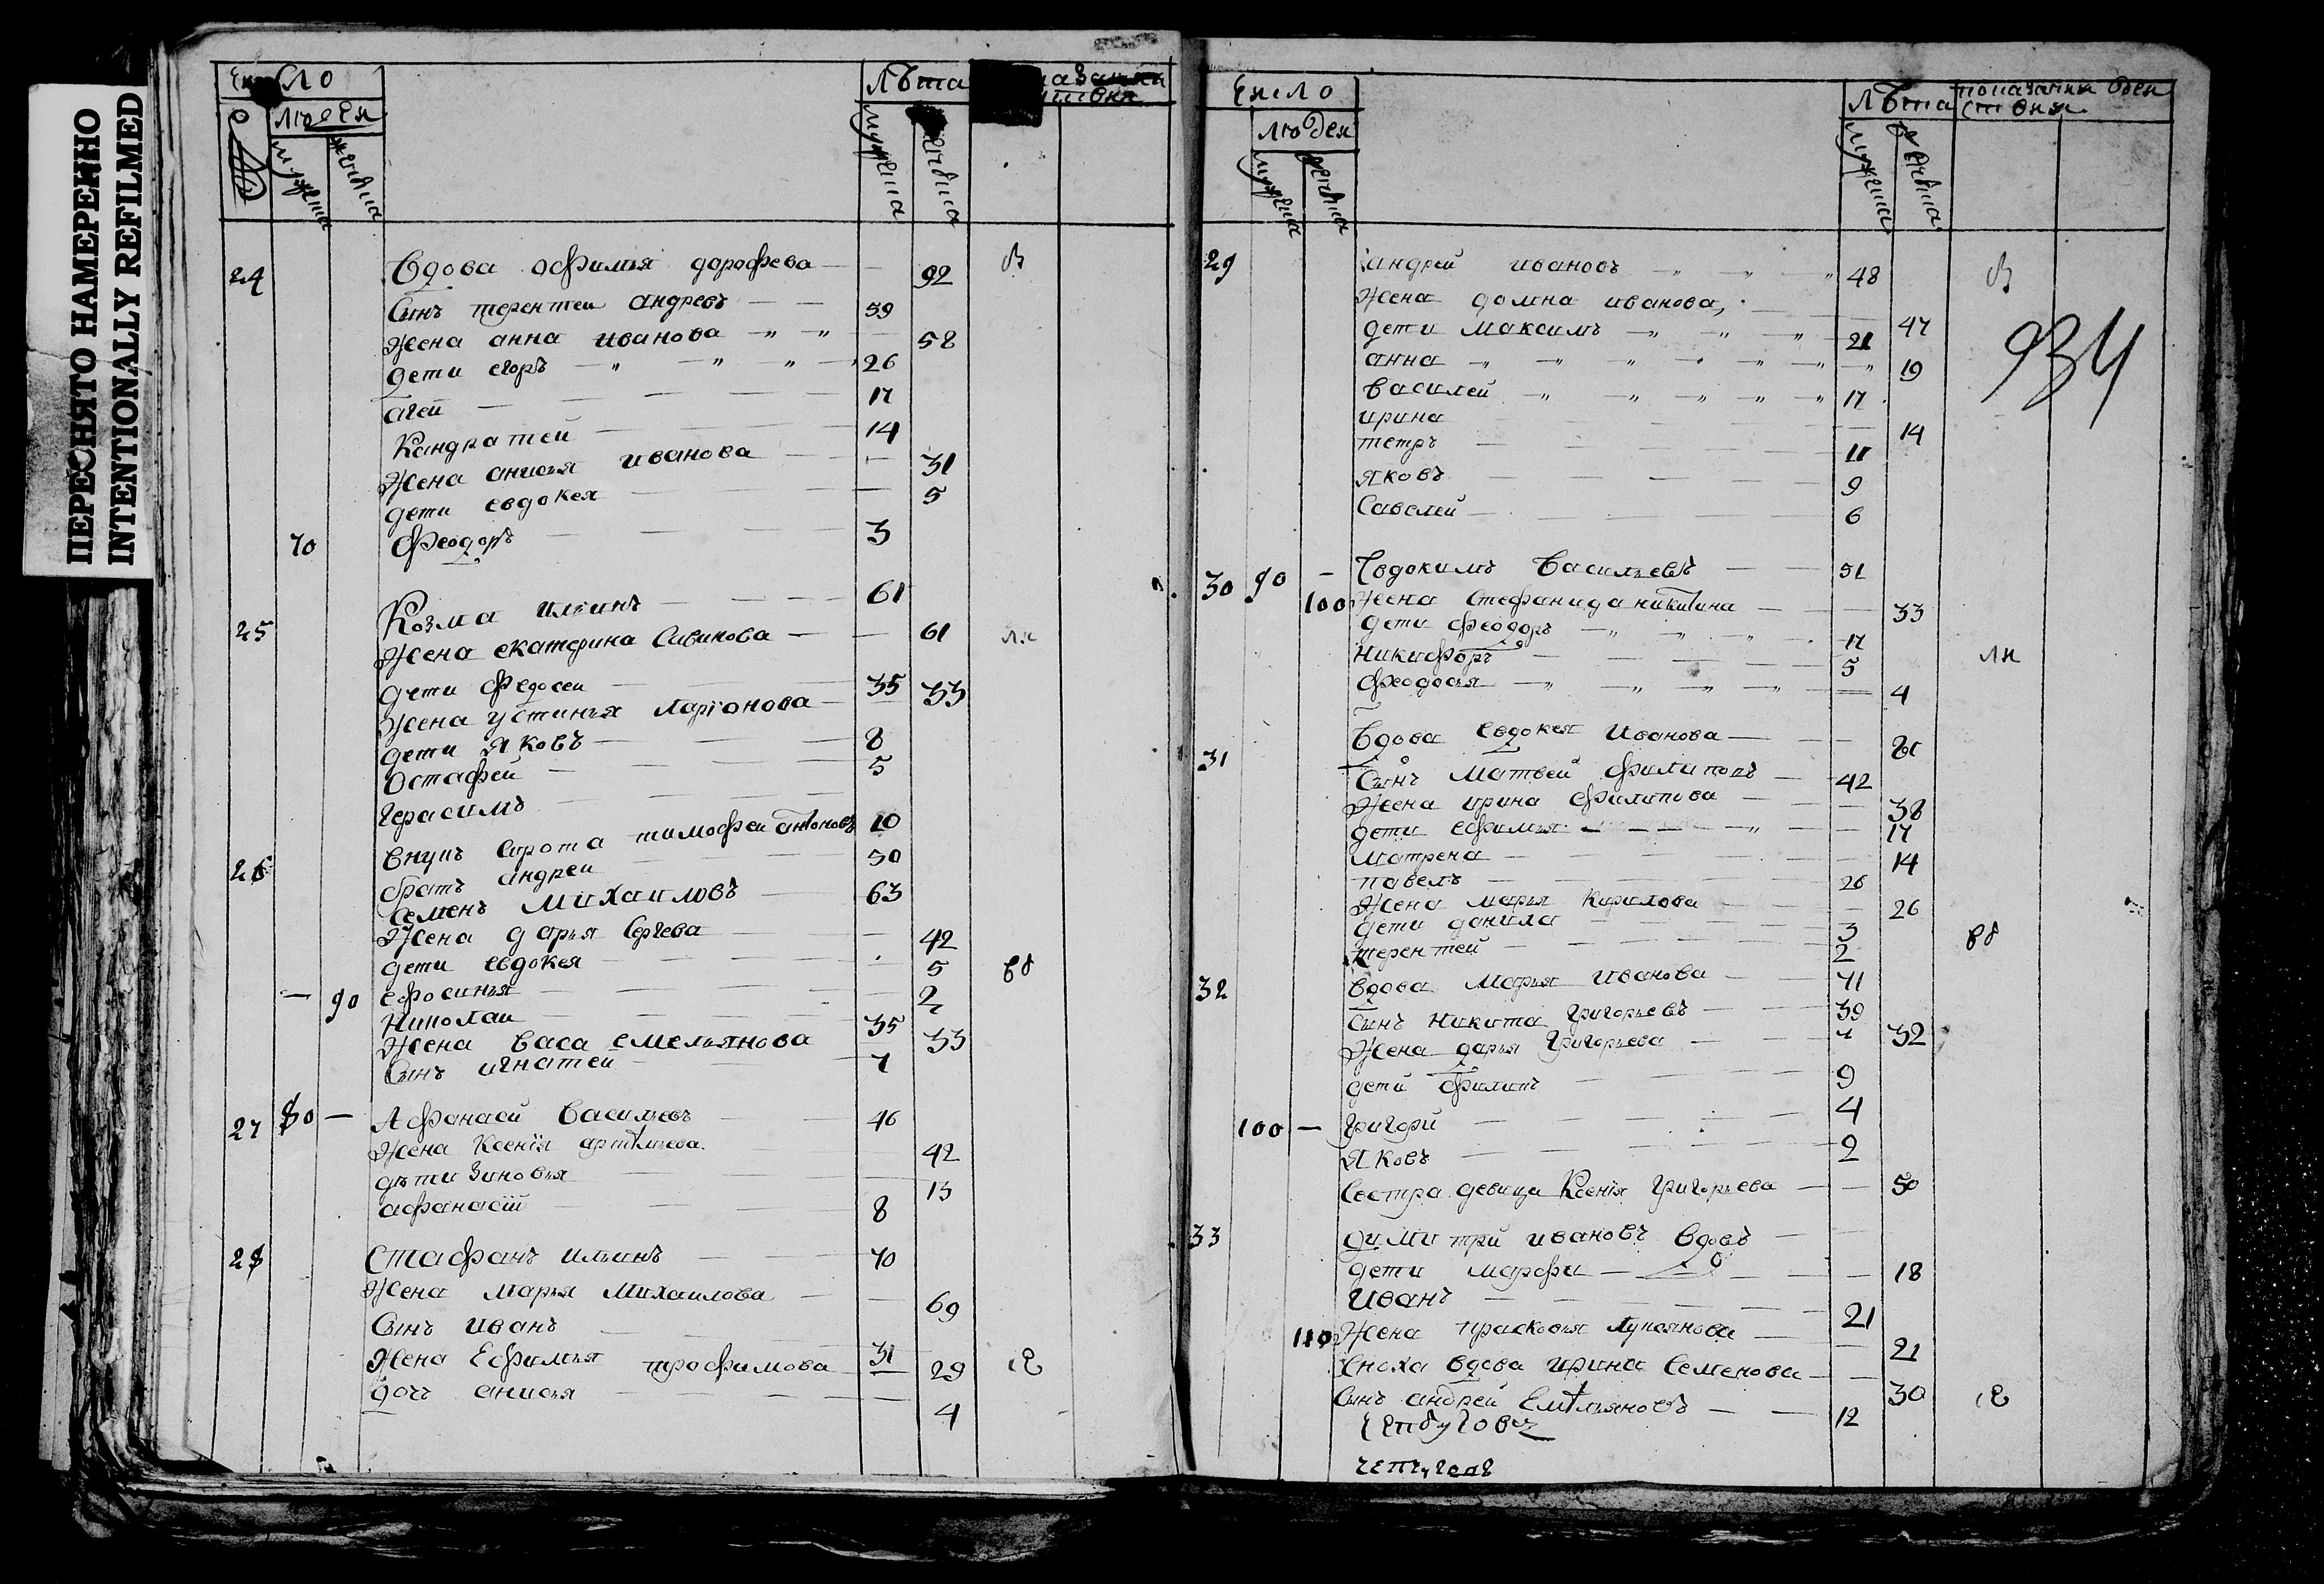 ПЕРЕСНЯТО НАМЕРЕННО
INTENTIONALLY REFILMED
Лѣта
людеи
мужеска
женска
мужеска
женска
24 Вдова офимья дорофева — — 92 В
Сынъ терентеи андревъ — — 59
Жена анна иванова — „ — „ — 58
дети егоръ — „ — „ — „ 26
агеи — 17
Кандратеи — 14
Жена анисья иванова — 31
дети евдокея — 5
70 Феодоръ — 3
25 Козма ильинъ — 61
Жена екатерина Савинова — — 61 лн
дети Федосеи — 35
Жена устинья Ларіонова — 33
дети яковъ — 8
Остафеи — 5
Герасимъ —
Внукъ Сирота тимофеи антоновъ 10
26 братъ андреи — 30
Семенъ Михаиловъ — 63
Жена дарья Сергева — 42
дети евдокея — 5 вд
— 90 ефросинья — 2
Николаи — 35
Жена Васа емельянова 33
Сынъ игнатеи — 7
27 80 — Афонасеи Васильевъ — 46
Жена Ксенія артемьева. 42
дѣти Зиновья — 13
афанасіи — 8
28 Стафанъ ильинъ — 70
Жена марья Михаилова — 69
Сынъ иванъ — 31
Жена Ефимья трофимова — 29
дочь анисья — 4
Число
Лѣта показании
людеи
мужеска
женска
мужеска
женска
934
29 андреи ивановъ — „ — „ — „ 48 В
Жена домна иванова, — 47
дети максимъ — „ — „ — „ 21
анна — „ — „ — „ — „ 19
Василеи — „ — „ — „ — „ 17
ирина — 14
петръ — 11
яковъ — 9
Савелеи — 6
30 90 — Евдокимъ Васильевъ — 51
100 Жена Стефанида никитина — — 33
дети Феодоръ — „ — „ — „ — 17
Никифоръ — 5 лн
Феодосья — „ — „ — „ — „ — 4
31 Вдова Евдокея Иванова — —
Сынъ Матвеи Филиповъ — 42
Жена ирина Филипова — — 38
дети ефимья — „ — 17
матрена — 14
павелъ — 26
Жена марья Кирилова — 26
дети данила — 3
терентеи — 2 вд
32 Вдова Марья Иванова — 71
Сынъ Никита Григорьевъ — 39
Жена дарья Григорьева — 32
дети Филипъ — 9
100 — Григори — 4
яковъ — 2
Сестра девица Ксенія Григорьева — — 50
33 димитри ивановъ вдовъ —
дети марфа — 18
Иванъ — 21
110 Жена прасковья Лукоянова — 21
Сноха вдова ирина Семенова — 30
Сынъ андреи Емельяновъ — — 12